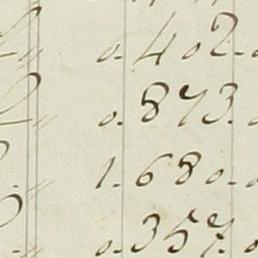 0. 402.
0. 873.
1. 680.
0. 357.